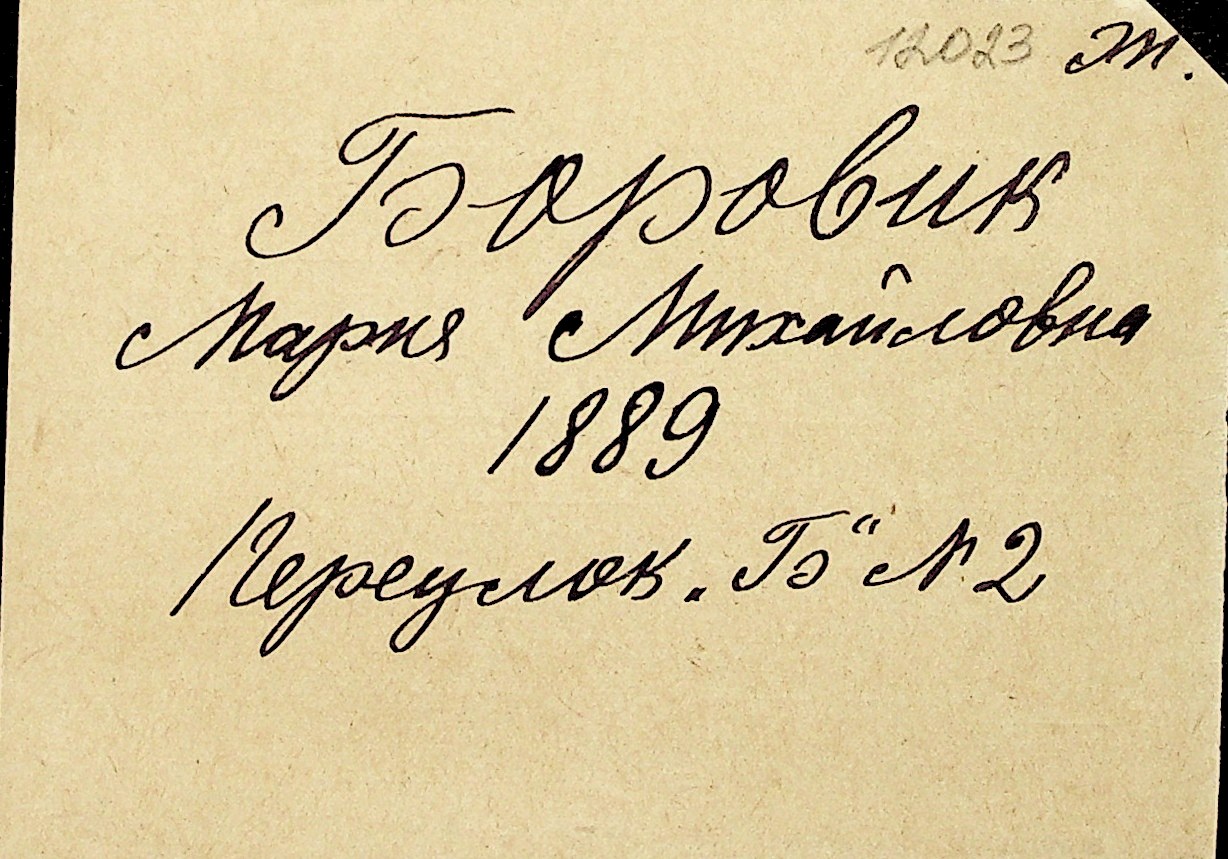 12023 т.
Боровик
Мария Михайловна
1889
Переулок „Б“ № 2